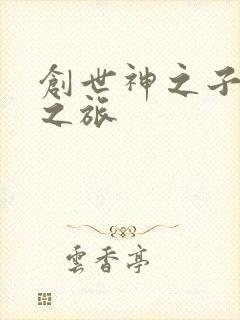 創世神之子
之旅
雲香亭